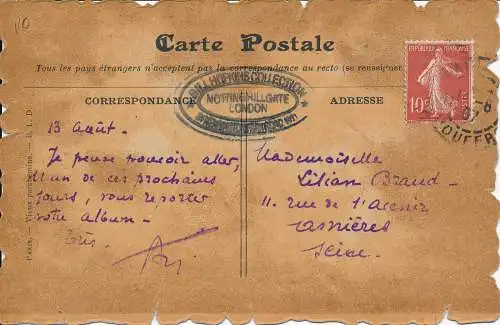 Carte Postale
Tous les pays étrangers n'acceptent pas la correspondance au recto (se renseigner
BILL HOPKINS COLLECTION
NOTTING HILL GATE
LONDON
CORRESPONDANCE
ADRESSE
REPUBLIQUE FRANÇAISE
10
13 Août.
Je pense pouvoir aller,
un de ces prochains
jours, vous reporter
votre album -
Mademoiselle
Lilian Braud -
11. rue de l'avenir
asnières
Seine.